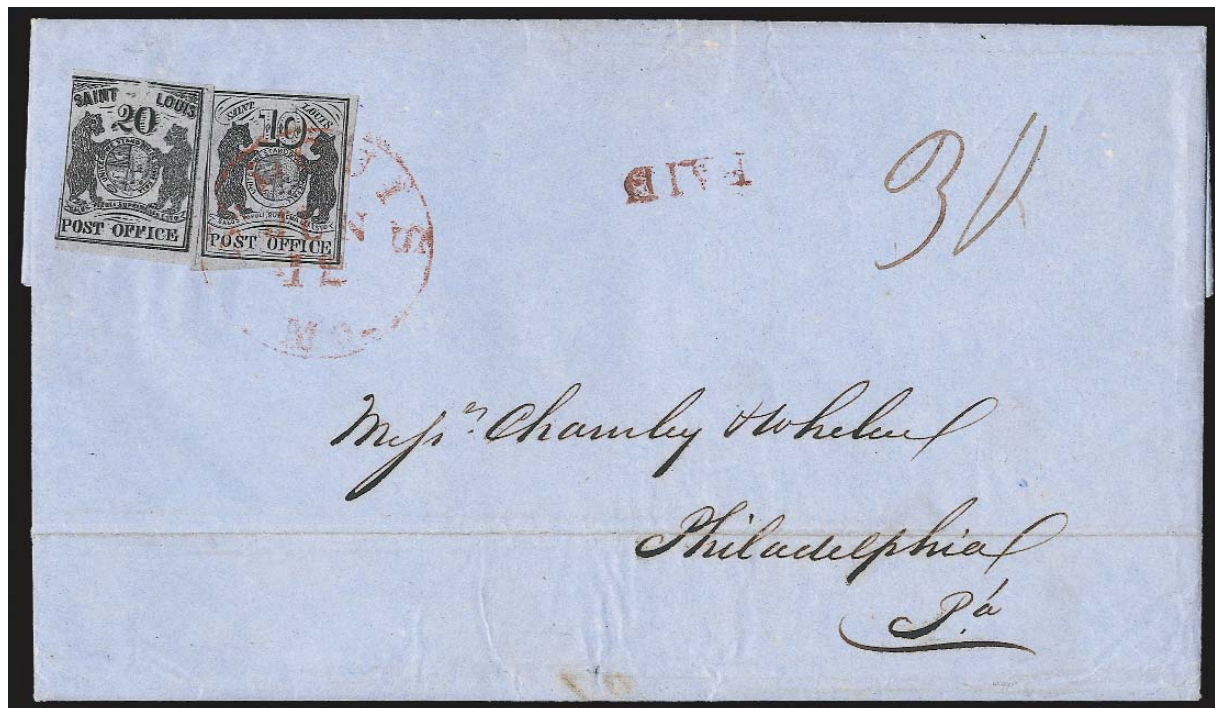 SAINT LOUIS
20
POST OFFICE
SAINT LOUIS
10
POST OFFICE
PAID
30
Messrs. Charnley & Whelen
Philadelphia
Pa